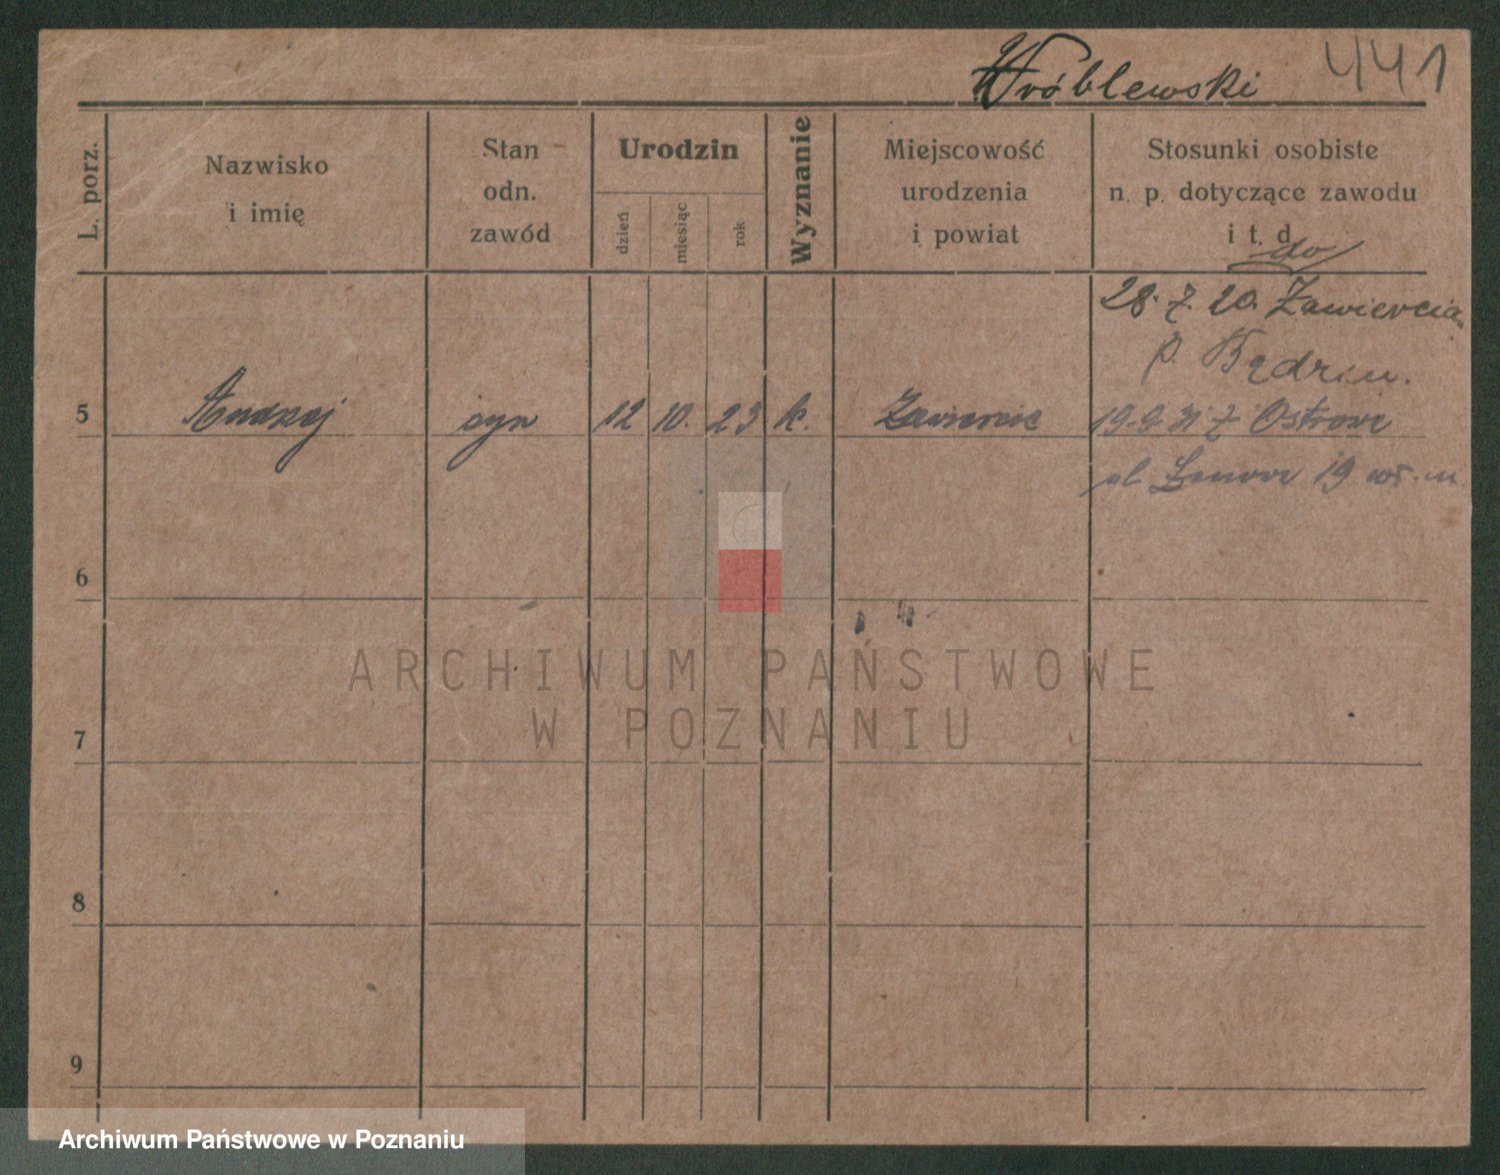 Wróblewski 441
L. porz.
Nazwisko
i imię
Stan
odn.
zawód
Urodzin
dzień
miesiąc
rok
Wyznanie
Miejscowość
urodzenia
i powiat
Stosunki osobiste
n. p. dotyczące zawodu
i t. d.
do
28. 7. 20. Zawiercia
p. Będzin.
5 Andrzej syn 12 10. 23 k. Zawiercie 19. z Ostrowa
ul. 19 m.
6
7
8
9
ARCHIWUM PAŃSTWOWE
W POZNANIU
Archiwum Państwowe w Poznaniu